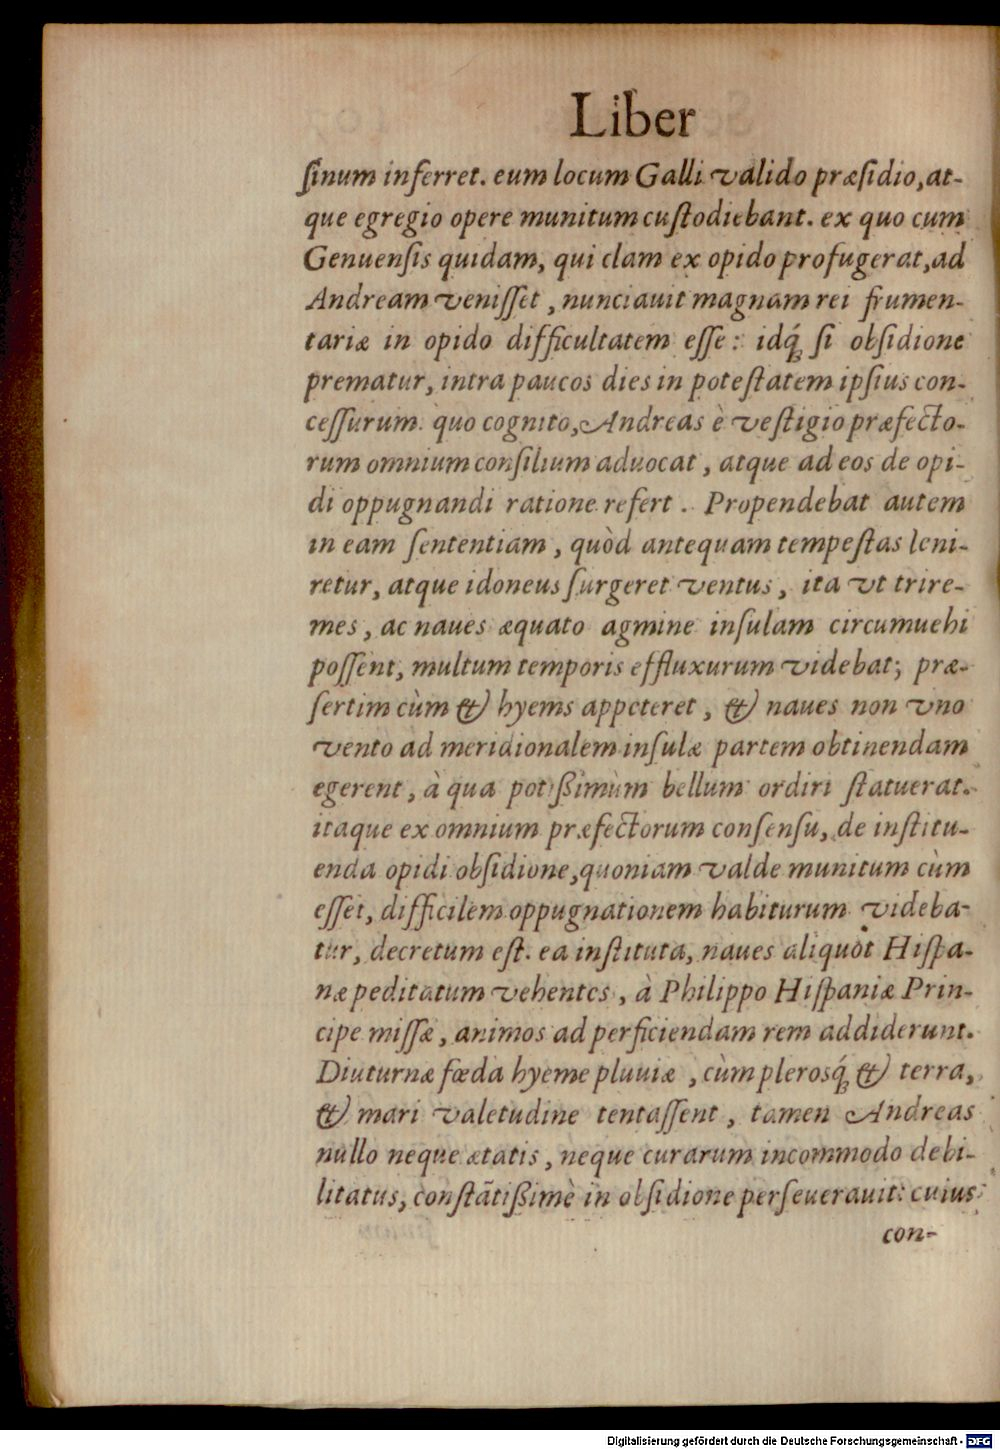 Liber
ſinum inferret. eum locum Galli valido præſidio, at-
que egregio opere munitum cuſtodiebant. ex quo cum
Genuenſis quidam, qui clam ex opido profugerat, ad
Andream veniſſet, nunciauit magnam rei frumen-
tariæ in opido difficultatem eſſe: idq́ꝫ ſi obſidione
prematur, intra paucos dies in poteſtatem ipſius con-
ceſſurum. quo cognito, Andreas è veſtigio præfecto-
rum omnium conſilium aduocat, atque ad eos de opi-
di oppugnandi ratione refert. Propendebat autem
in eam ſententiam, quòd antequam tempeſtas leni-
retur, atque idoneus ſurgeret ventus, ita vt trire-
mes, ac naues æquato agmine inſulam circumuehi
poſſent, multum temporis effluxurum videbat; præ-
ſertim cùm & hyems appeteret, & naues non vno
vento ad meridionalem inſulæ partem obtinendam
egerent, à qua potißimùm bellum ordiri ſtatuerat.
itaque ex omnium præfectorum conſenſu, de inſtitu-
enda opidi obſidione, quoniam valde munitum cùm
eſſet, difficilem oppugnationem habiturum videba-
tur, decretum eſt. ea inſtituta, naues aliquòt Hiſpa-
næ peditatum vehentes, à Philippo Hiſpaniæ Prin-
cipe miſſæ, animos ad perficiendam rem addiderunt.
Diuturnæ fœda hyeme pluuiæ, cùm plerosq́ꝫ & terra,
& mari valetudine tentaſſent, tamen Andreas
nullo neque ætatis, neque curarum incommodo debi-
litatus, conſtãtißimè in obſidione perſeuerauit: cuius
con-
Digitalisierung gefördert durch die Deutsche Forschungsgemeinschaft - DFG